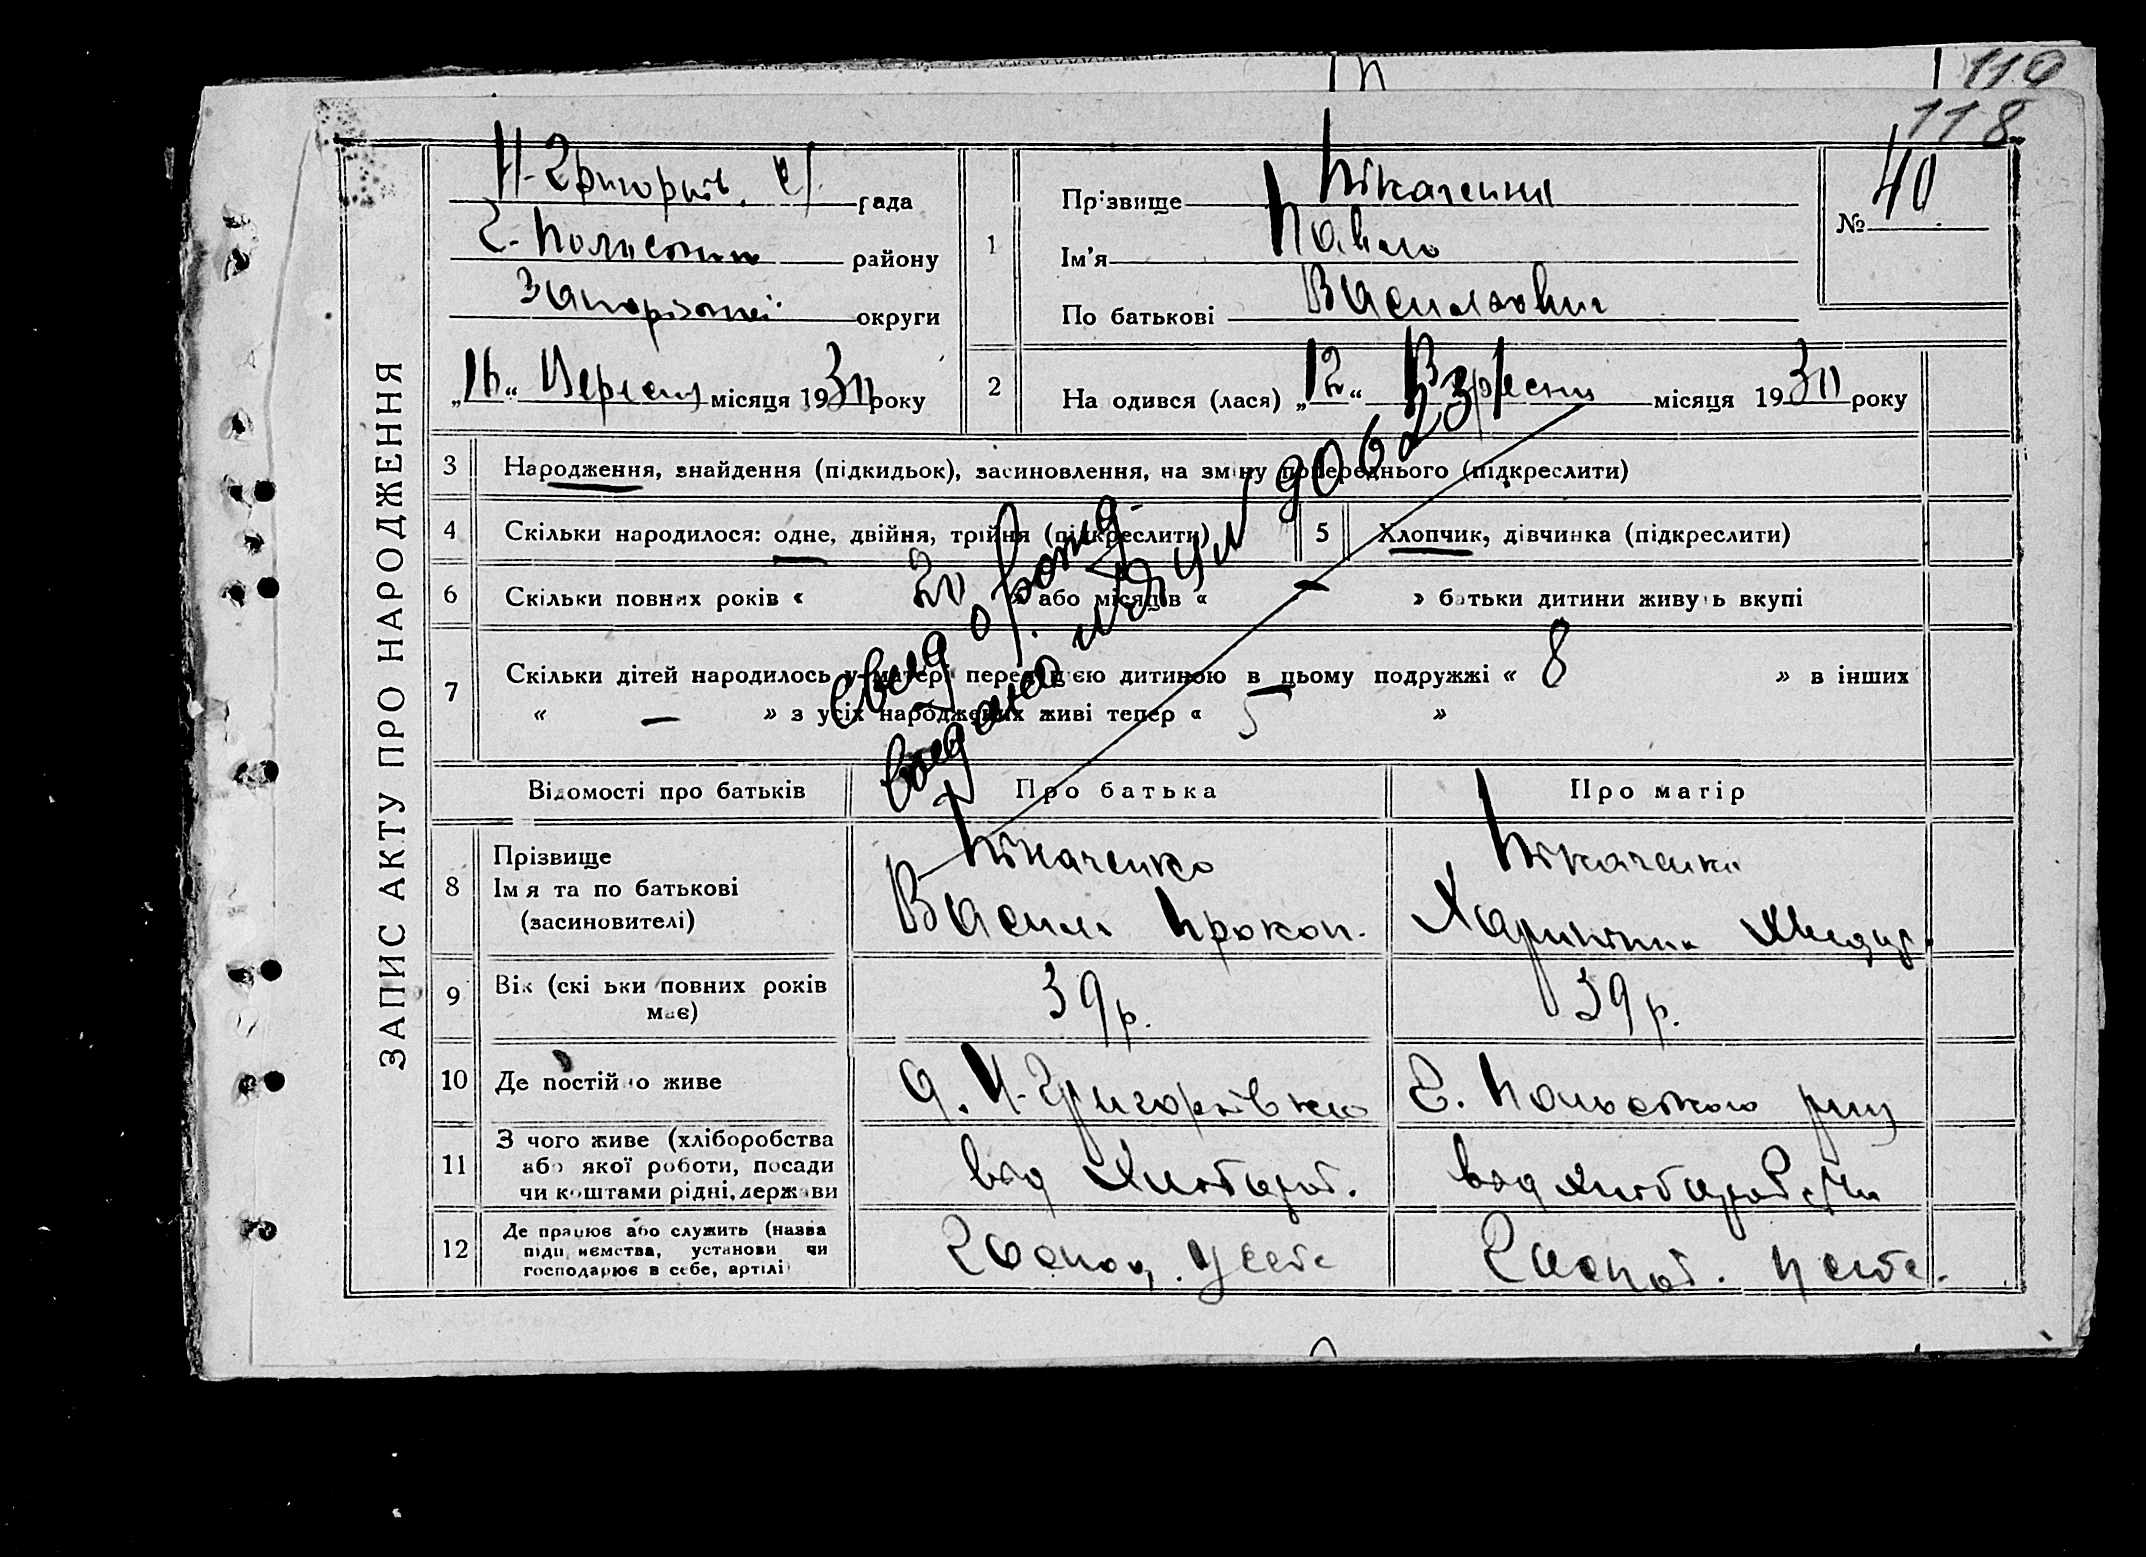 119
118
Н-Григорів. с/ рада
Г. Польском району
Запорізької округи
„16“ Вересня місяця 1930 року
1
Прізвище Нікаченко
Ім'я Павло
По батькові Васильович
№ 40
2
На одився (лася) „12“ Вересня місяця 1930 року
ЗАПИС АКТУ ПРО НАРОДЖЕННЯ
3 Народження, знайдення (підкидьок), засиновлення, на зміну попереднього (підкреслити)
4 Скільки народилося: одне, двійня, трійня (підкреслити)
5 Хлопчик, дівчинка (підкреслити)
6 Скільки повних років « 20 » або місяців « — » батьки дитини живуть вкупі
7 Скільки дітей народилось у матері перед цією дитиною в цьому подружжі « 8 » в інших
« — » з усіх народжених живі тепер « 5 »
Свид о рожд.
выдано
№ 906231
Відомості про батьків
Про батька
Про матір
8 Прізвище
Ім я та по батькові
(засиновителі)
Нікаченко
Василь Прокоп.
Нікаченко
9 Вік (скільки повних років
має)
39 р.
39 р.
10 Де постійно живе
с. Н-Григорівка
Г. Польського рну
11 З чого живе (хліборобства
або якої роботи, посади
чи коштами рідні, держави
від хлібороб.
від хліборобства
12 Де працює або служить (назва
підприємства, установи чи
господарює в себе, артілі
Господ. у себе
Господ. у себе.